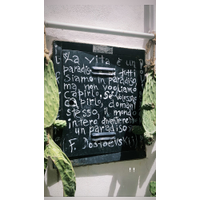 La vita è un
paradiso tutti
Siamo in paradiso
ma non vogliamo
capirlo, Se volessimo
capirlo, domani
stesso il mondo
intero diventereb
un paradiso
F. Dostoevskij